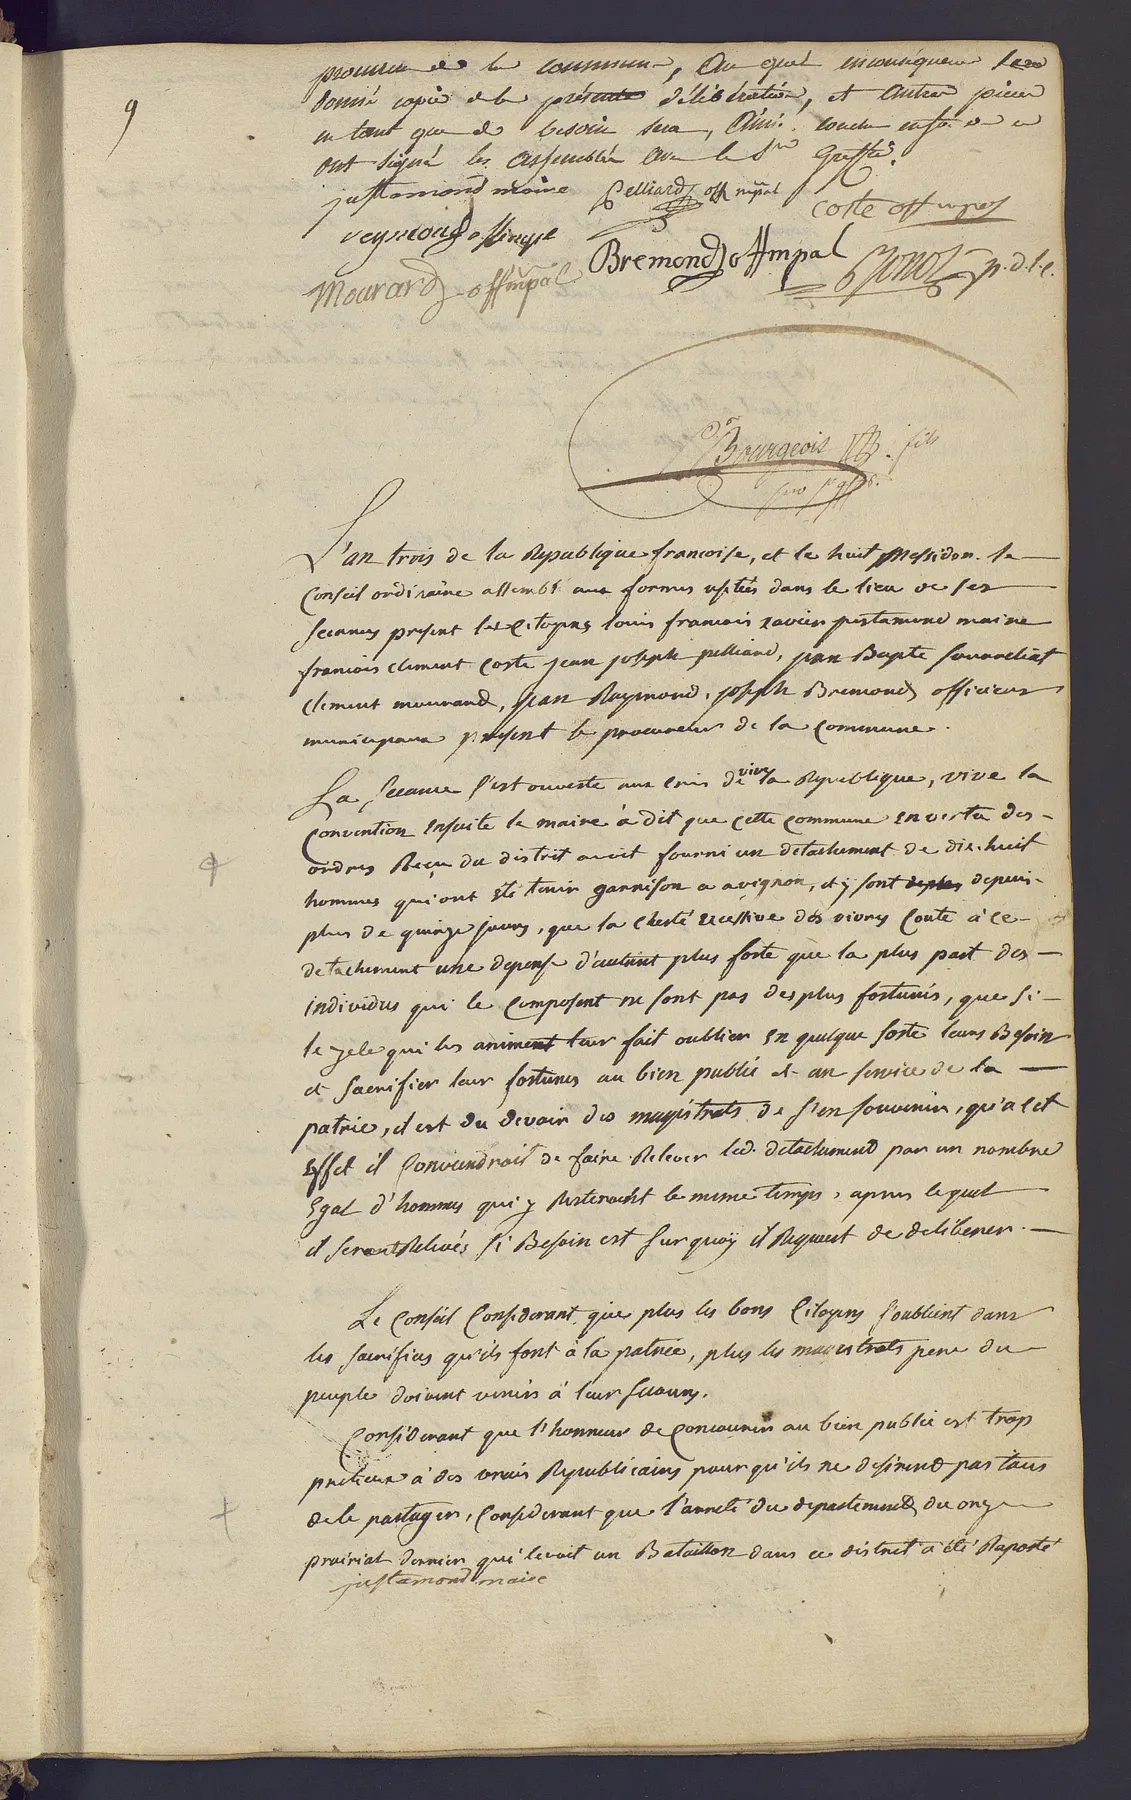 9
procureur de la commune, au quel inconséquence sera
donné copie de la présente délibération, et autres pieces
en tant que de besoin sera, Ainsi conclu
ont signé les assemblés avec le Sre Greffié.
justamond maire pelliard off mpal
coste off mpal
reymond off mpl
Bremond off mpal
Mourard off mpal
p.d.l.c.
Bourgeois fils
L'an trois de la Republique francoise, et le huit Messidor. le
Conseil ordinaire assemblé aux formes usitées dans le lieu de ses
seances present les Citoyens louis francois xavier justamond maire
francois clement coste jean joseph pelliard, jean Bapte
clement mourard, jean Raymond, joseph Bremond officiers
municipaux present le procureur de la Commune.
La seeance s'est ouverte aux cris de vive la Republique, vive la
Convention ensuite le maire à dit que cette commune en vertu des
ordres Reçu du distrit avoit fourni un detachement de dix-huit
hommes qui ont été tenir garnison a avignon, et y sont depuis
plus de quinze jours, que la cherté excessive des vivres Coute à ce
detachement une depense d'autant plus forte que la plus part des
individus qui le Composent ne sont pas des plus fortunés, que si
le zele qui les animent leur fait oublier en quelque sorte leurs Besoin
et sacrifier leur fortunes au bien public et au service de la
patrie, il est du devoir des magistrats de s'en souvenir, qu'a cet
effet il Conviendroit de faire Relever led. detachement par un nombre
Egal d'hommes qui y Resteroient le meme temps, apres lequel
il seront Relevés si Besoin est sur quoy il Requert de deliberer.
Le Conseil Considerant que plus les bons Citoyens s'oublient dans
les sacrifices qu'ils font à la patrie, plus les magistrats pere du
peuple doivent venir à leur secours.
Considerant que l'honneur de Concourir au bien public est trop
pretieux à des vrais Republicains pour qu'ils ne desirent pas tous
de le partager, Considerant que l'arreté du departement du onze
prairial dernier qui levoit un Bataillon dans ce district a été Raporté
justamond maire